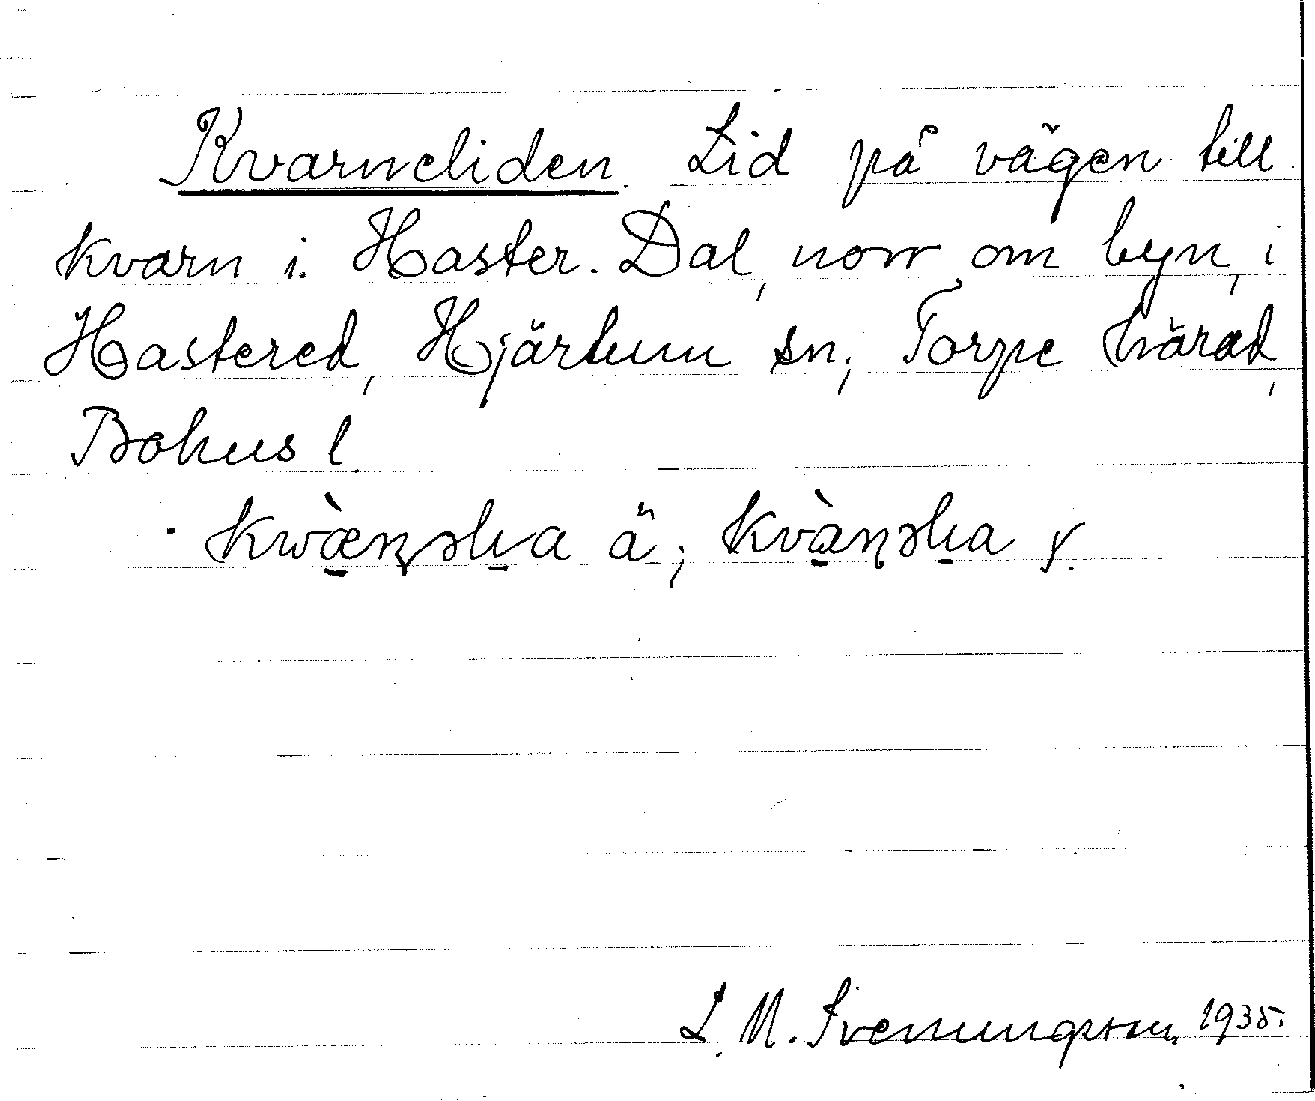 Kvarneliden. Lid på vägen till
kvarn i Haster. Dal, norr om byn, i
Hastered, Hjärtum sn; Torpe härad,
Bohus l.
L. M. Svenungsson, 1935.